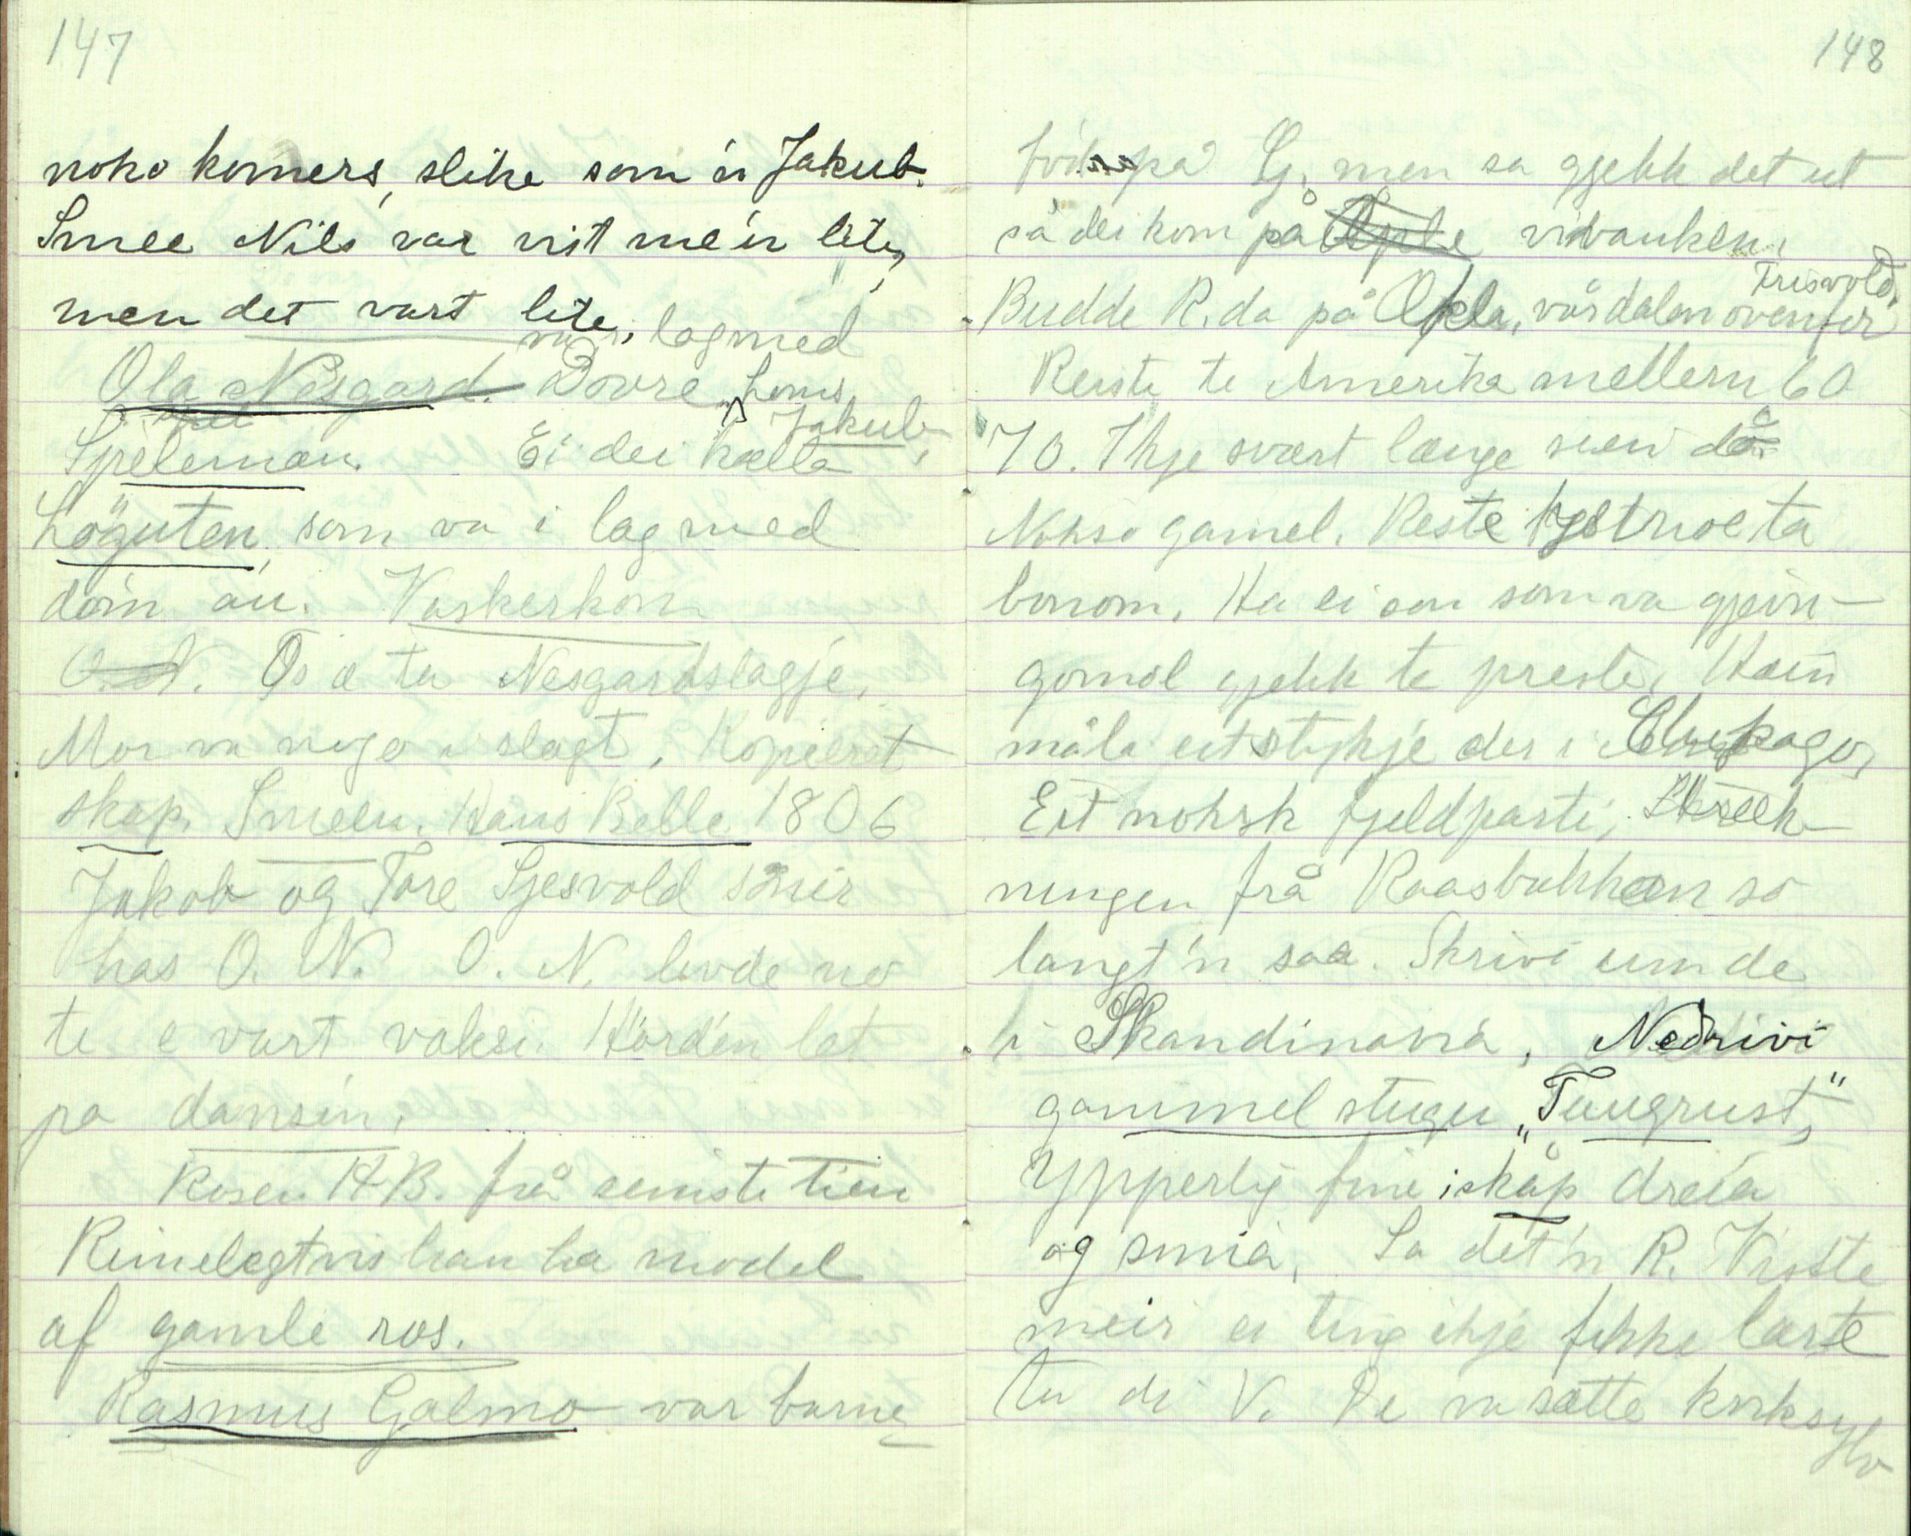 147
noko komers, slike som 'n Jakub.
Smee Nils var vist me'n lite,
men det vart lite.
va i lag med
Ola Nesgard. Dovre Loms
Jakub,
Speleman. Ei dei kalla
Löguten, som va i lag med
dom au. Vaskerkon
O. N. Os a ta Nesgardslagje.
Mor va nogo i slagt. Kopieret
skap. Smeen. Hans Belle 1806
Jakob og Tore Sjesvold sönir
has O. N. O. N. levde no
te e vart vaksi. Hörde'n lat
pa dansen.
Rosen H.B. frå semste tien
Rimelegtvis han ha model
af gamle ros.
Rasmus Galmo var barne
148
födt på Lj. men sa gjekk det ut
så dei kom på vidvanken.
Trisvold.
Budde R. da på Okla, vårdalen ovenfor
Reiste te Amerika mellem 60
70. Ikje svært længe sien då
Nokso gamel. Reste te
bonom. Ha ei son som va gjevn
gomol gjekk te preste. Hain
måla eit stykje der i Chikago,
Eit nohsk fjeldparti, Strek
ningen frå Raasbakkan so
langt 'n saa. Skrivi um de
i Skandinavia, Nedrivi
gammel stugu „Tungrust",
Ypperlig fine skåp dreia
og smia. Sa det 'n R. Visste
meir ei ting ikje fikke lært
ta di V. De va sætte kvksylv